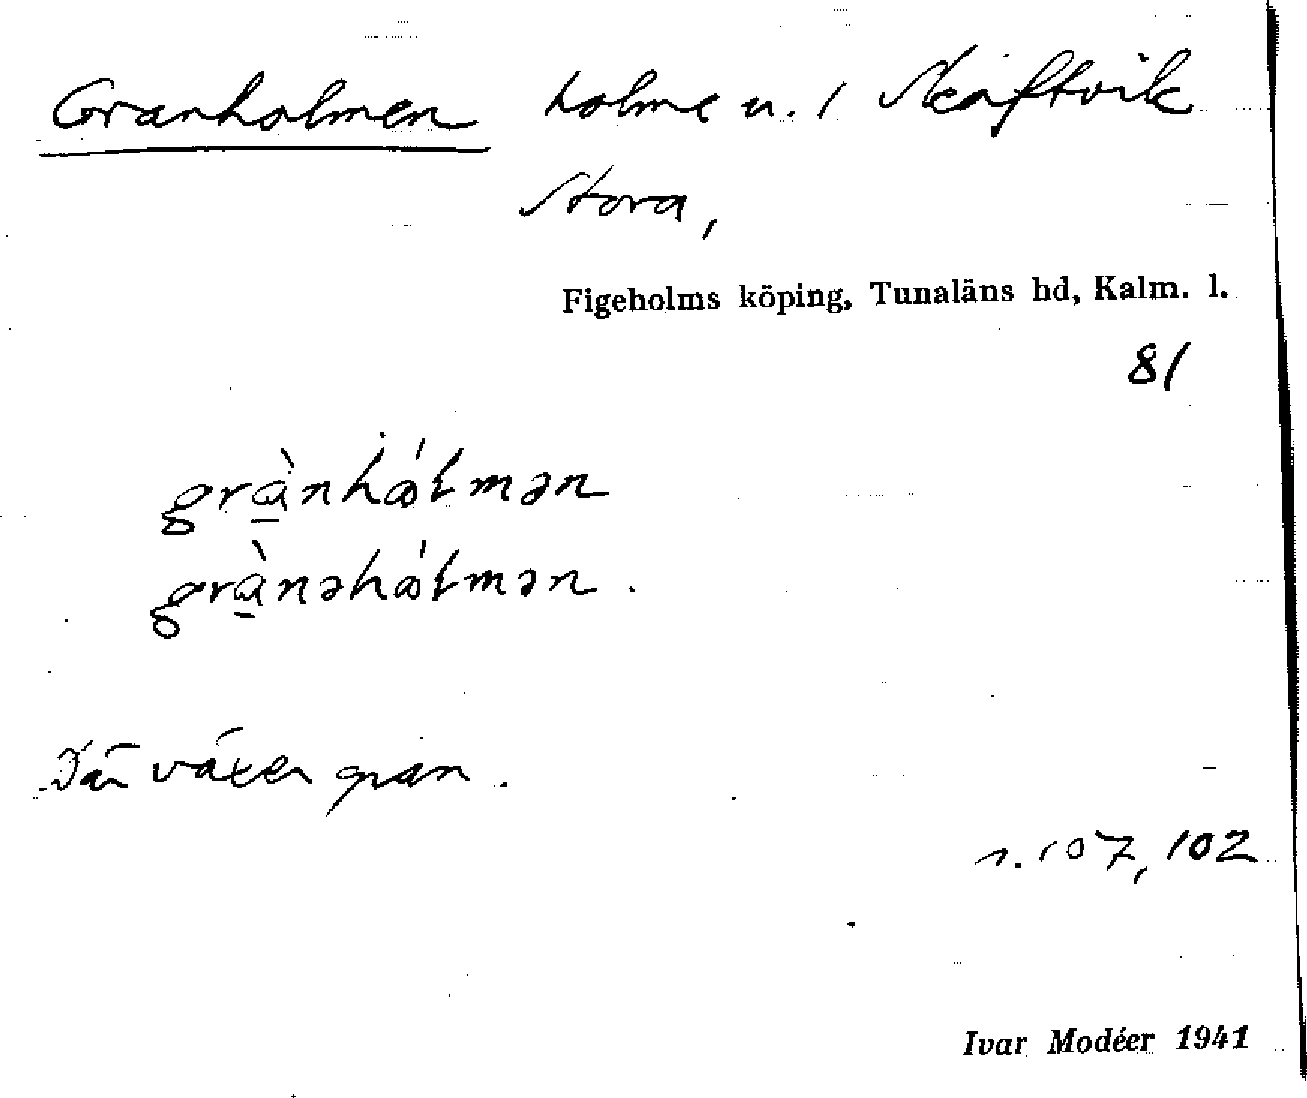 Granholmen holme u. 1 Skaftvik
Stora,
Figeholms köping, Tunaläns hd, Kalm. l.
81
grànhólmən
grànəhólmən.
Där växer gran.
s. 107, 102
Ivar Modéer 1941